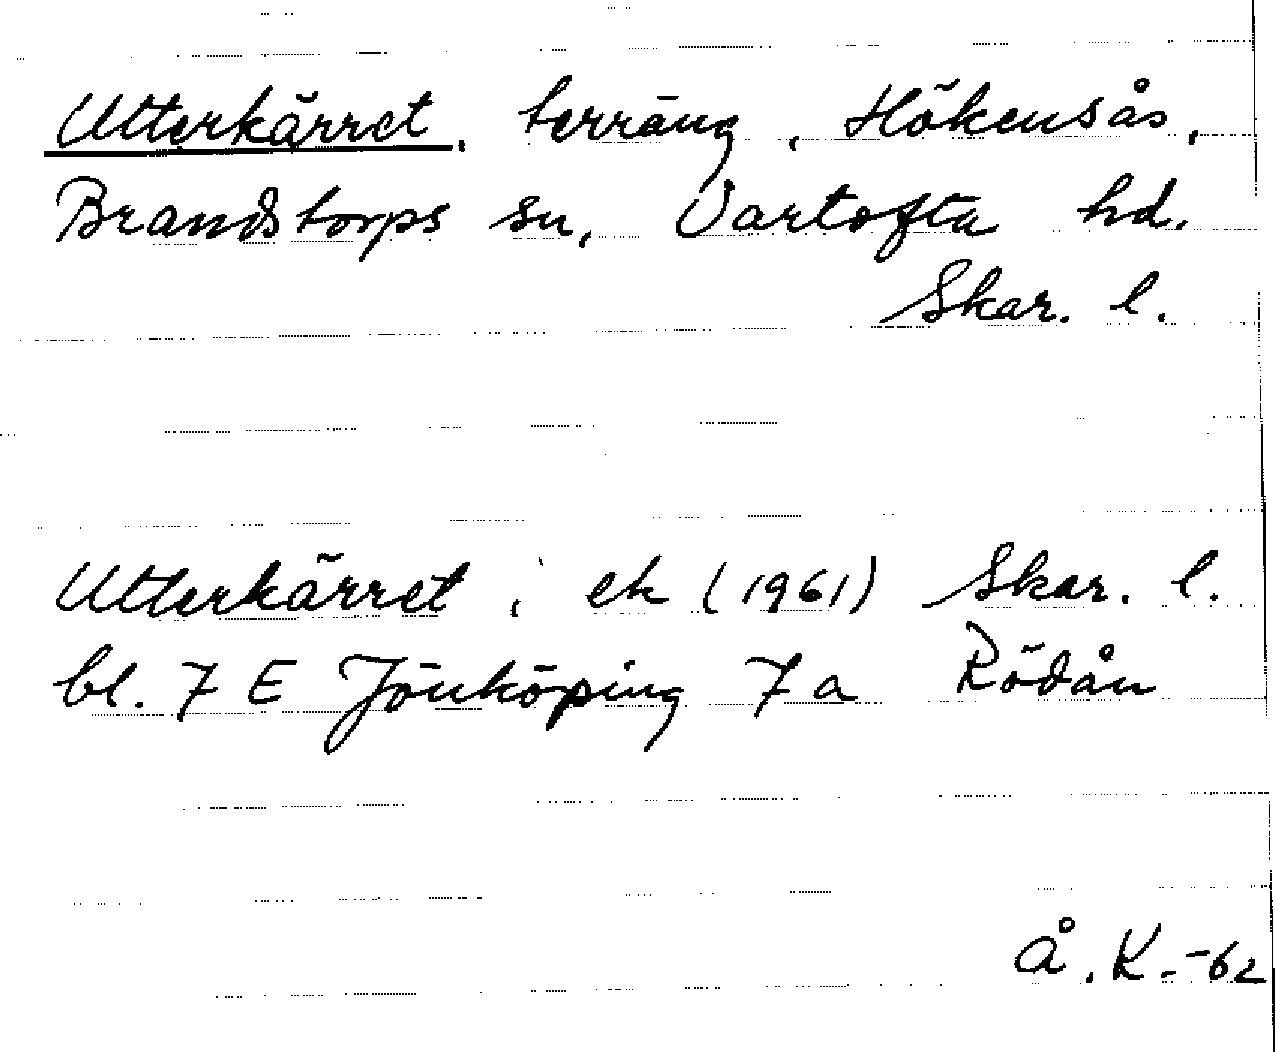 Utterkärret, terräng, Hökensås,
Brandstorps sn, Vartofta hd.
Skar. l.
Utterkärret ; ek (1961) Skar. l.
bl. 7 E Jönköping 7 a Rödån
Å. K. -62